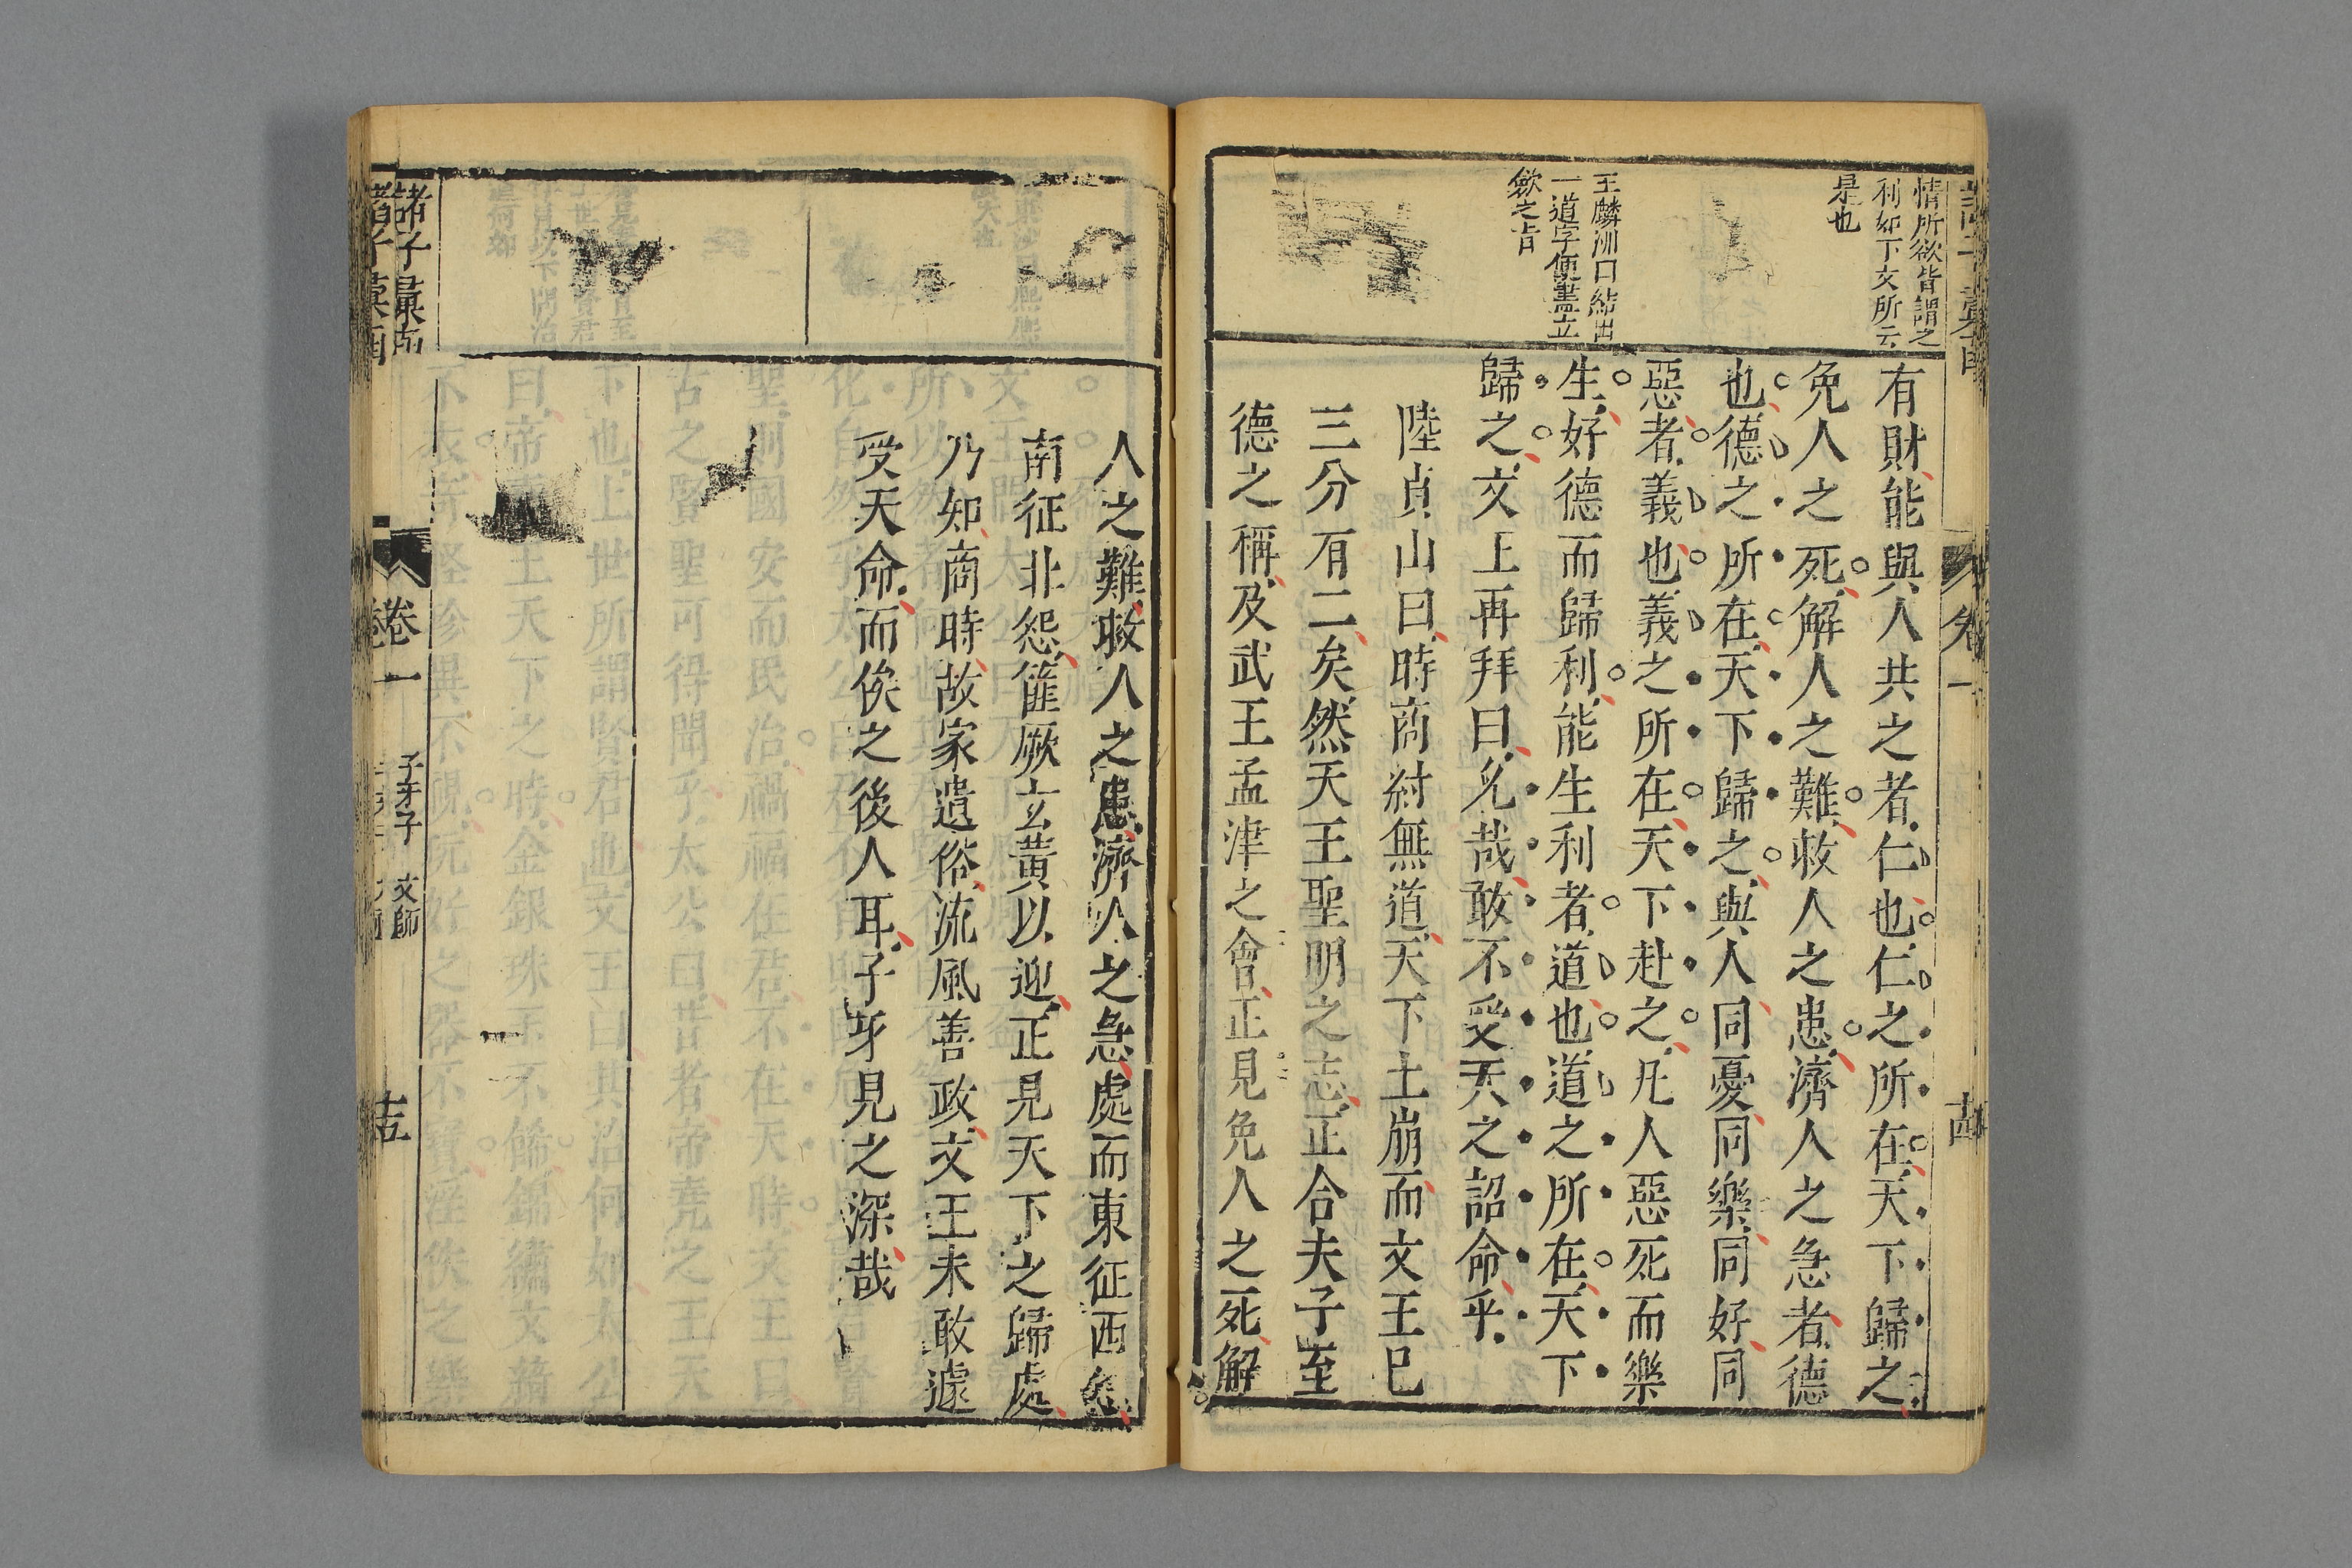 情所欲皆謂之
利如下文所云
是也
王麟洲口結出
一道字便盡立
歛之旨
有財能與人共之者仁也仁之所在天下歸之
免人之死解人之難救人之患濟人之急者德
也德之所在天下歸之與人同憂同樂同好同
惡者義也義之所在天下赴之凡人惡死而樂
生好德而歸利能生利者道也道之所在天下
歸之文上再拜曰兊哉敢不受天之詔命乎
陸貞山曰時商紂無道天下土崩而文王巳
三分有二矣然天王聖明之志正合夫子至
德之稱及武王孟津之會正見免人之死解
人之難救人之患濟人之急處而東征西怨
南征北怨篚厥玄黃以迎正見天下之歸處
乃知商時故家遺俗流風善政文王未敢遽
受天命而俟之後人耳子牙見之深哉
諸子彙函
卷一
子牙子
文師